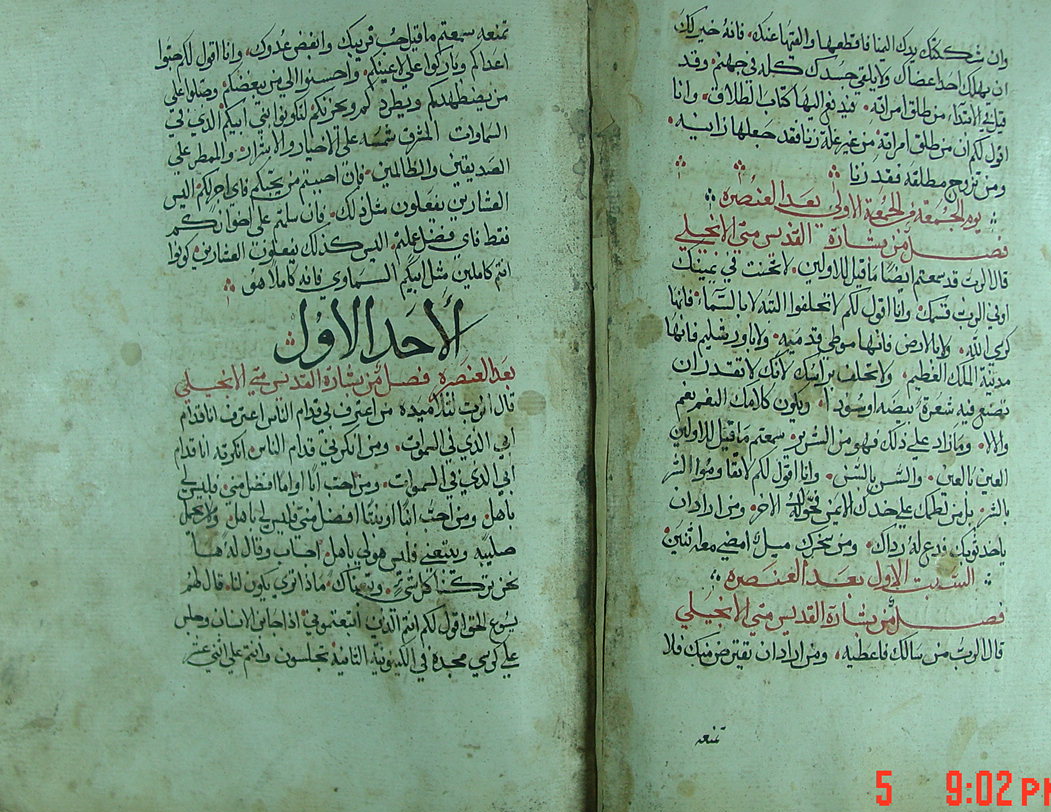 وان شككتك يدك اليمنا فاقطعها والقها عنك. فانه خير لك
ان يهلك احد اعضاك ولا يلقي جسدك كله في جهنم. وقد
قيل في الابتداء من طلق امراته. فليدفع اليها كتاب الطلاق. وانا
اقول لكم ان من طلق امراته من غير علة زنا فقد جعلها زانيه.
ومن تزوج مطلقه فقد زنا
يوم الجمعه في الجمعة الاولي بعد العنصره
فصل من بشارة القديس متي الانجيلي
قال الرب قد سمعتم ايضًا ما قيل للاولين. لا تحنث في يمينك
اوفي الرب قسمك. وانا اقول لكم لا تحلفوا البته لا بالسما. فانها
كرسي الله. ولا بالارض فانها موطي قدميه. ولا باورشليم فانها
مدينة الملك العظيم. ولا تحلف براسك لانك لا تقدر ان
تصنع فيه شعرة بيضه او سودا. ويكون كلامك النعم نعم
والالا. وما زاد علي ذلك فهو من الشرير. سمعتم ما قيل للاولين
العين بالعين. والسن بالسن. وانا اقول لكم لا تقاوموا الشر
بالشر. بل من لطمك علي خدك الايمن فحول له الاخر. ومن اراد ان
ياخد ثوبك فدع له رداك. ومن سخرك ميل امضي معه ثنين
السبت الاول بعد العنصره
فصل من بشارة القديس متي الانجيلي
قال الرب من سالك فاعطيه. ومن اراد ان يقترض منك فلا
تمنعه
تمنعه. سمعتم ما قيل حب قريبك وابغض عدوك. وانا اقول لكم حبوا
اعداكم وباركوا علي لاعنيكم. واحسنوا الي من يبغضكم. وصلوا علي
من يضطهدكم ويطردكم ويحزنكم لتكونوا بني ابيكم الدي في
السماوات المشرق شمسه علي الاخيار والاشرار. والممطر علي
الصديقين والظالمين. فان احببتم من يحبكم فاي اجر لكم. اليس
العشارين يفعلون مثل ذلك. فان سلمتم علي اخواتكم
فقط فاي فضل عملتم. اليس كذلك يفعلون العشارين. كونوا
انتم كاملين مثل ابيكم السماوي فانه كاملا هو
الأحد الاول
بعد العنصره فصل من بشارة القديس متي الانجيلي
قال الرب لتلاميده من اعترف بي قدام الناس اعترف انا قدام
ابي الدي في السموات. ومن انكرني قدام الناس. انكرته انا قدام
ابي الدي في السموات. ومن احب ابًا او امًا افضل مني. فليس لي
باهل. ومن احب ابنًا او بنتًا افضل مني فليس لي باهل. ولا يحمل
صليبه ويتبعني فليس هو لي باهل. اجاب وقال له ها
نحن تركنا كل شي. وتبعناك. ماذا تري يكون لنا. قال لهم
يسوع الحق اقول لكم انتم الدين اتبعتموني اذا جا ابن الانسان وجلس
علي كرسي مجده في الكينونية الثانية تجلسون وانتم علي اثني عشر
5 9:02 PM